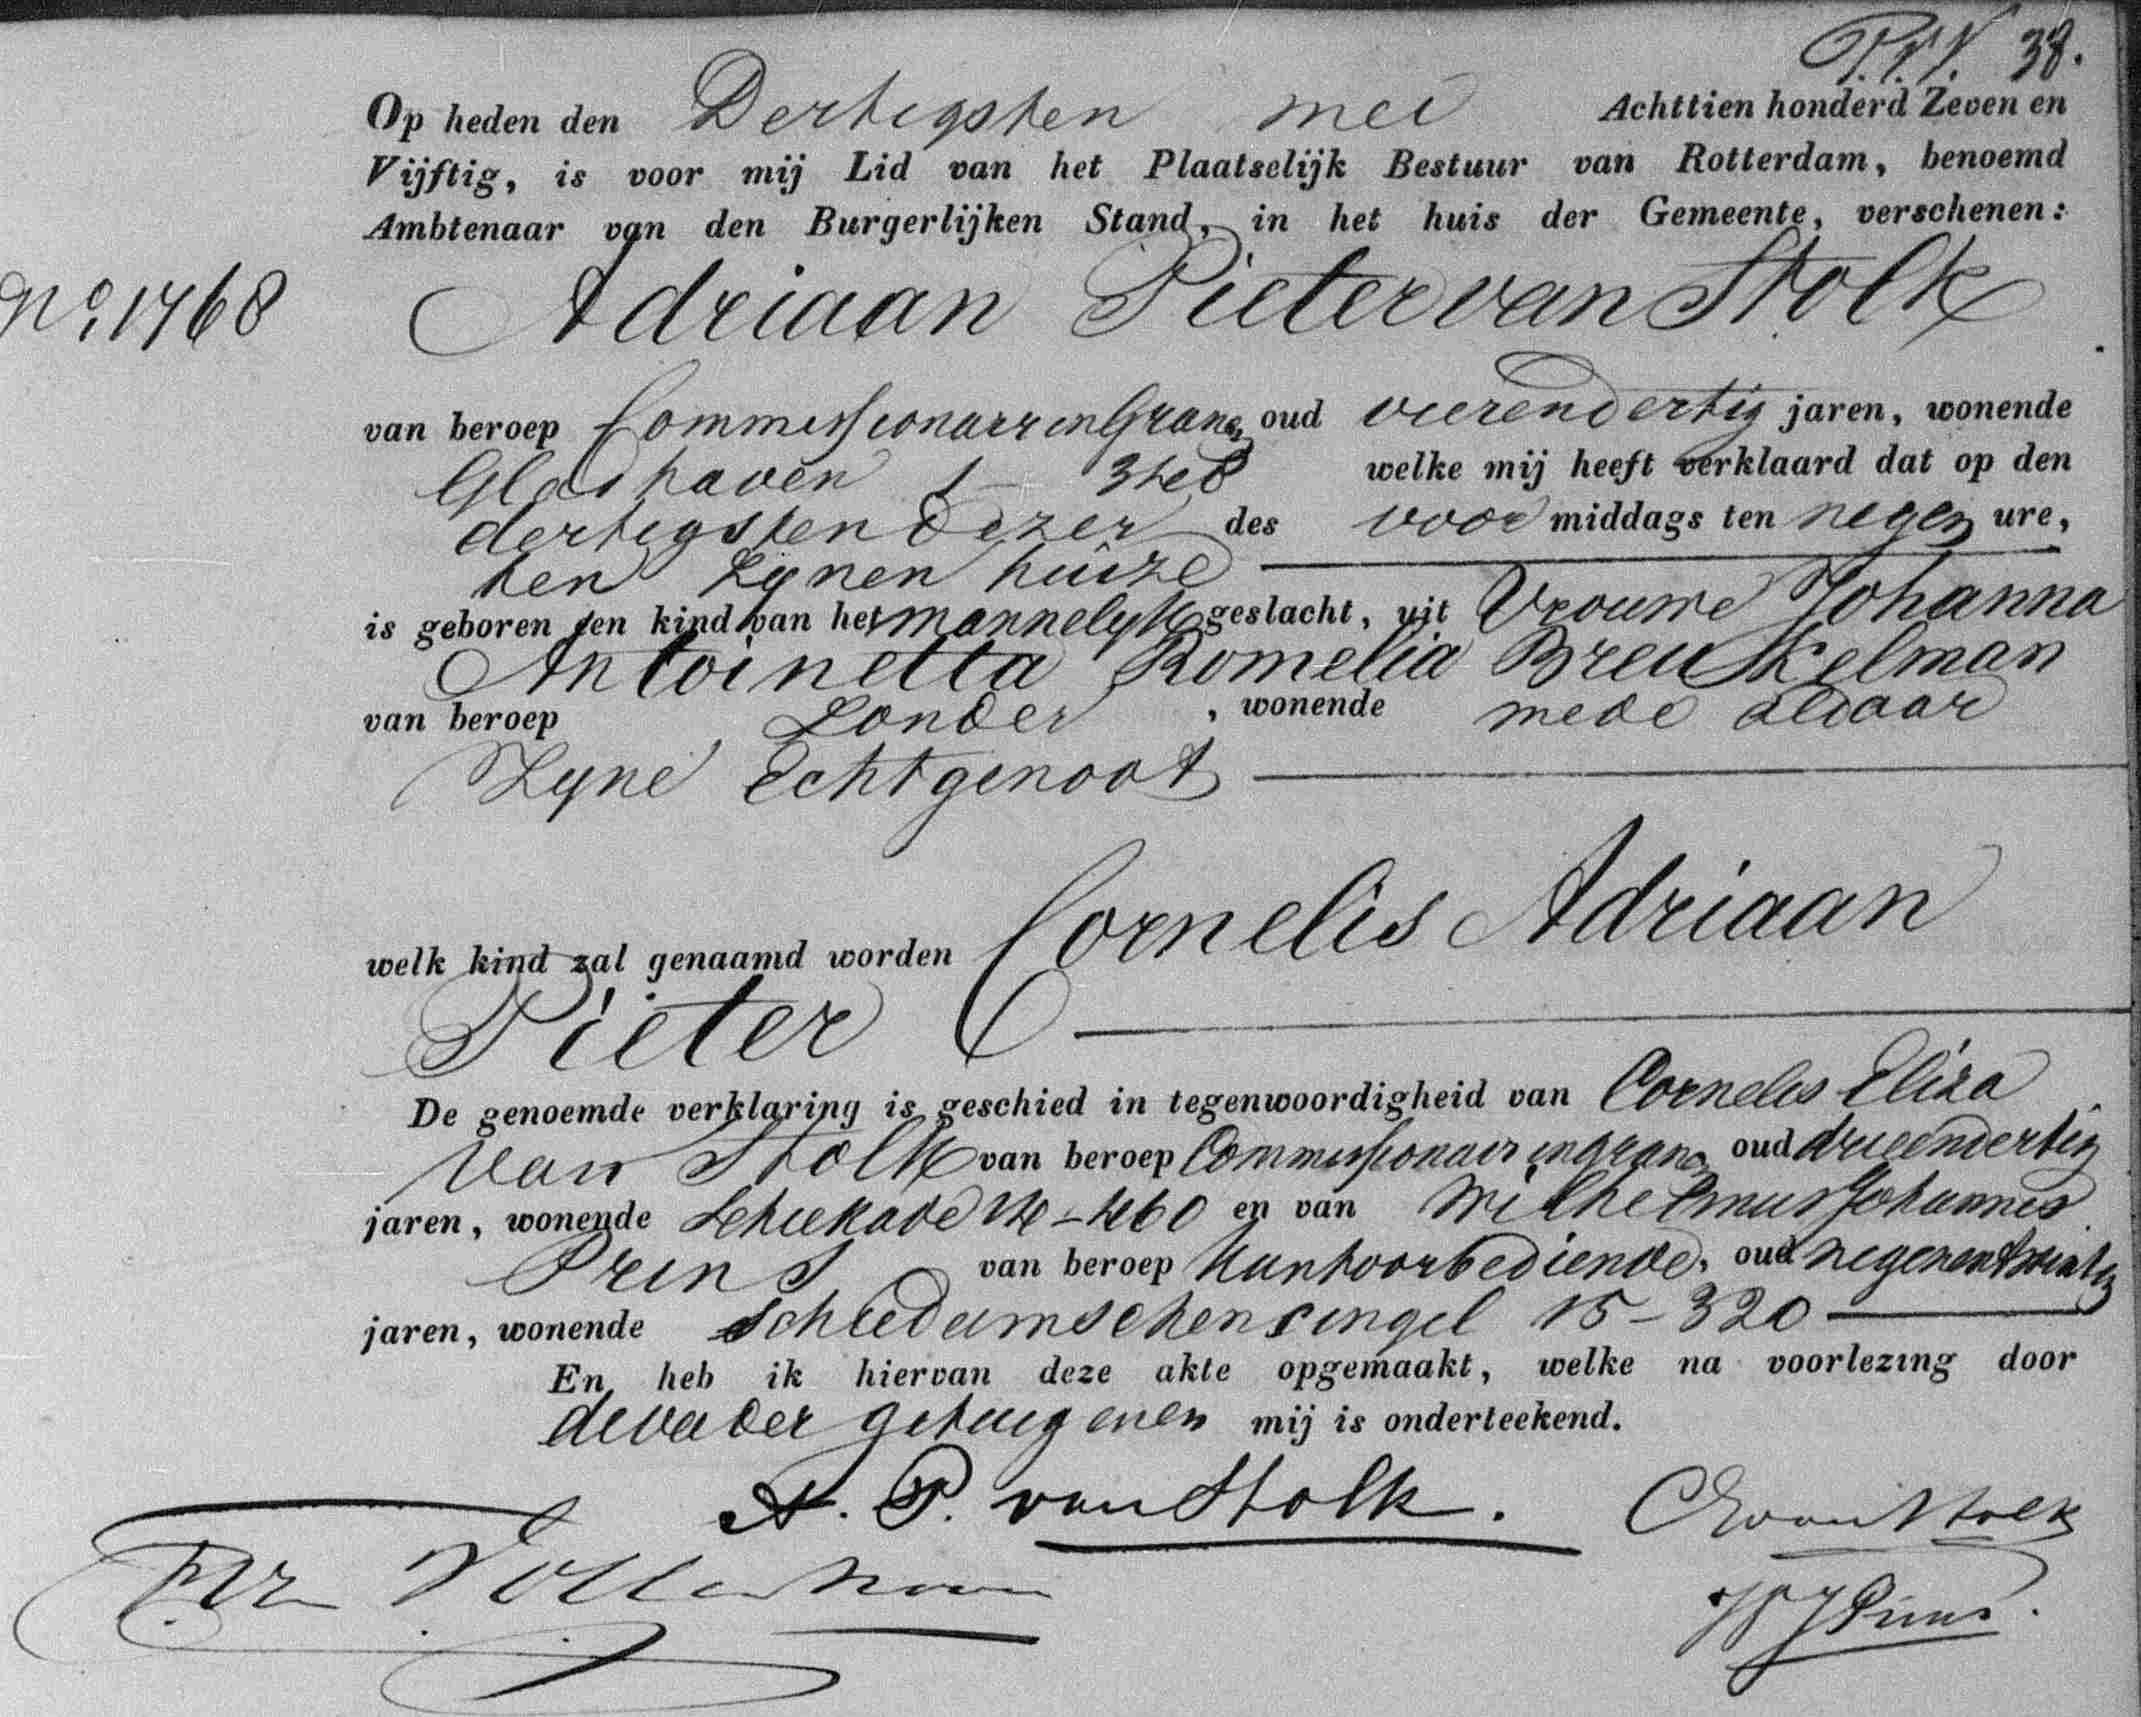 38.
Op heden den Dertigsten mei Achttien honderd Zeven en
Vijftig, is voor mij Lid van het Plaatselijk Bestuur van Rotterdam, benoemd
Ambtenaar van den Burgerlijken Stand, in het huis der Gemeente, verschenen:
No. 1768
Adriaan Pieter van Stolk
van beroep Commissionair in Granen oud vierendertig jaren, wonende
Glashaven 1 welke mij heeft verklaard dat op den
dertigsten dezer des voor middags ten negen ure,
ten zynen huize
is geboren een kind van het mannelyk geslacht, uit Vrouwe Johanna
Antoinetta Romelia Breukelman
van beroep Zonder, wonende mede aldaar
Zyne Echtgenoot
welk kind zal genaamd worden Cornelis Adriaan
Pieter
De genoemde verklaring is geschied in tegenwoordigheid van Cornelis Eliza
van Stolk van beroep Commissionair in granen oud drieendertig
jaren, wonende Schiekade en van Wilhelmus Johannes
Prins van beroep Kantoorbediende, oud negenentwintig
jaren, wonende Schiedamschensingel 15-320
En heb ik hiervan deze akte opgemaakt, welke na voorlezing door
de vader getuigen en mij is onderteekend.
A. P. van Stolk. CE van Stolk
WJ Prins.